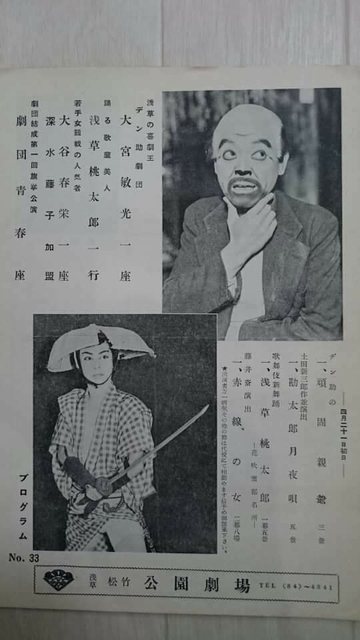 浅草の喜劇王
デン助劇団
大宮敏光一座
踊る歌麗美人
浅草桃太郎一行
若手女剣戟の人気者
大谷春栄一座
深水藤子加盟
劇団結成第一回旗挙公演
劇団青春座
四月二十一日初日
デン助の
一、頑固親爺 三景
土田新三郎作並演出
一、勘太郎月夜唄 五景
歌舞伎新舞踊
一、浅草桃太郎 一幕五景
藤井斎演出
一、赤線の女 一幕八場
プログラム
No. 33
浅草 松竹 公園劇場 TEL (84)-4341